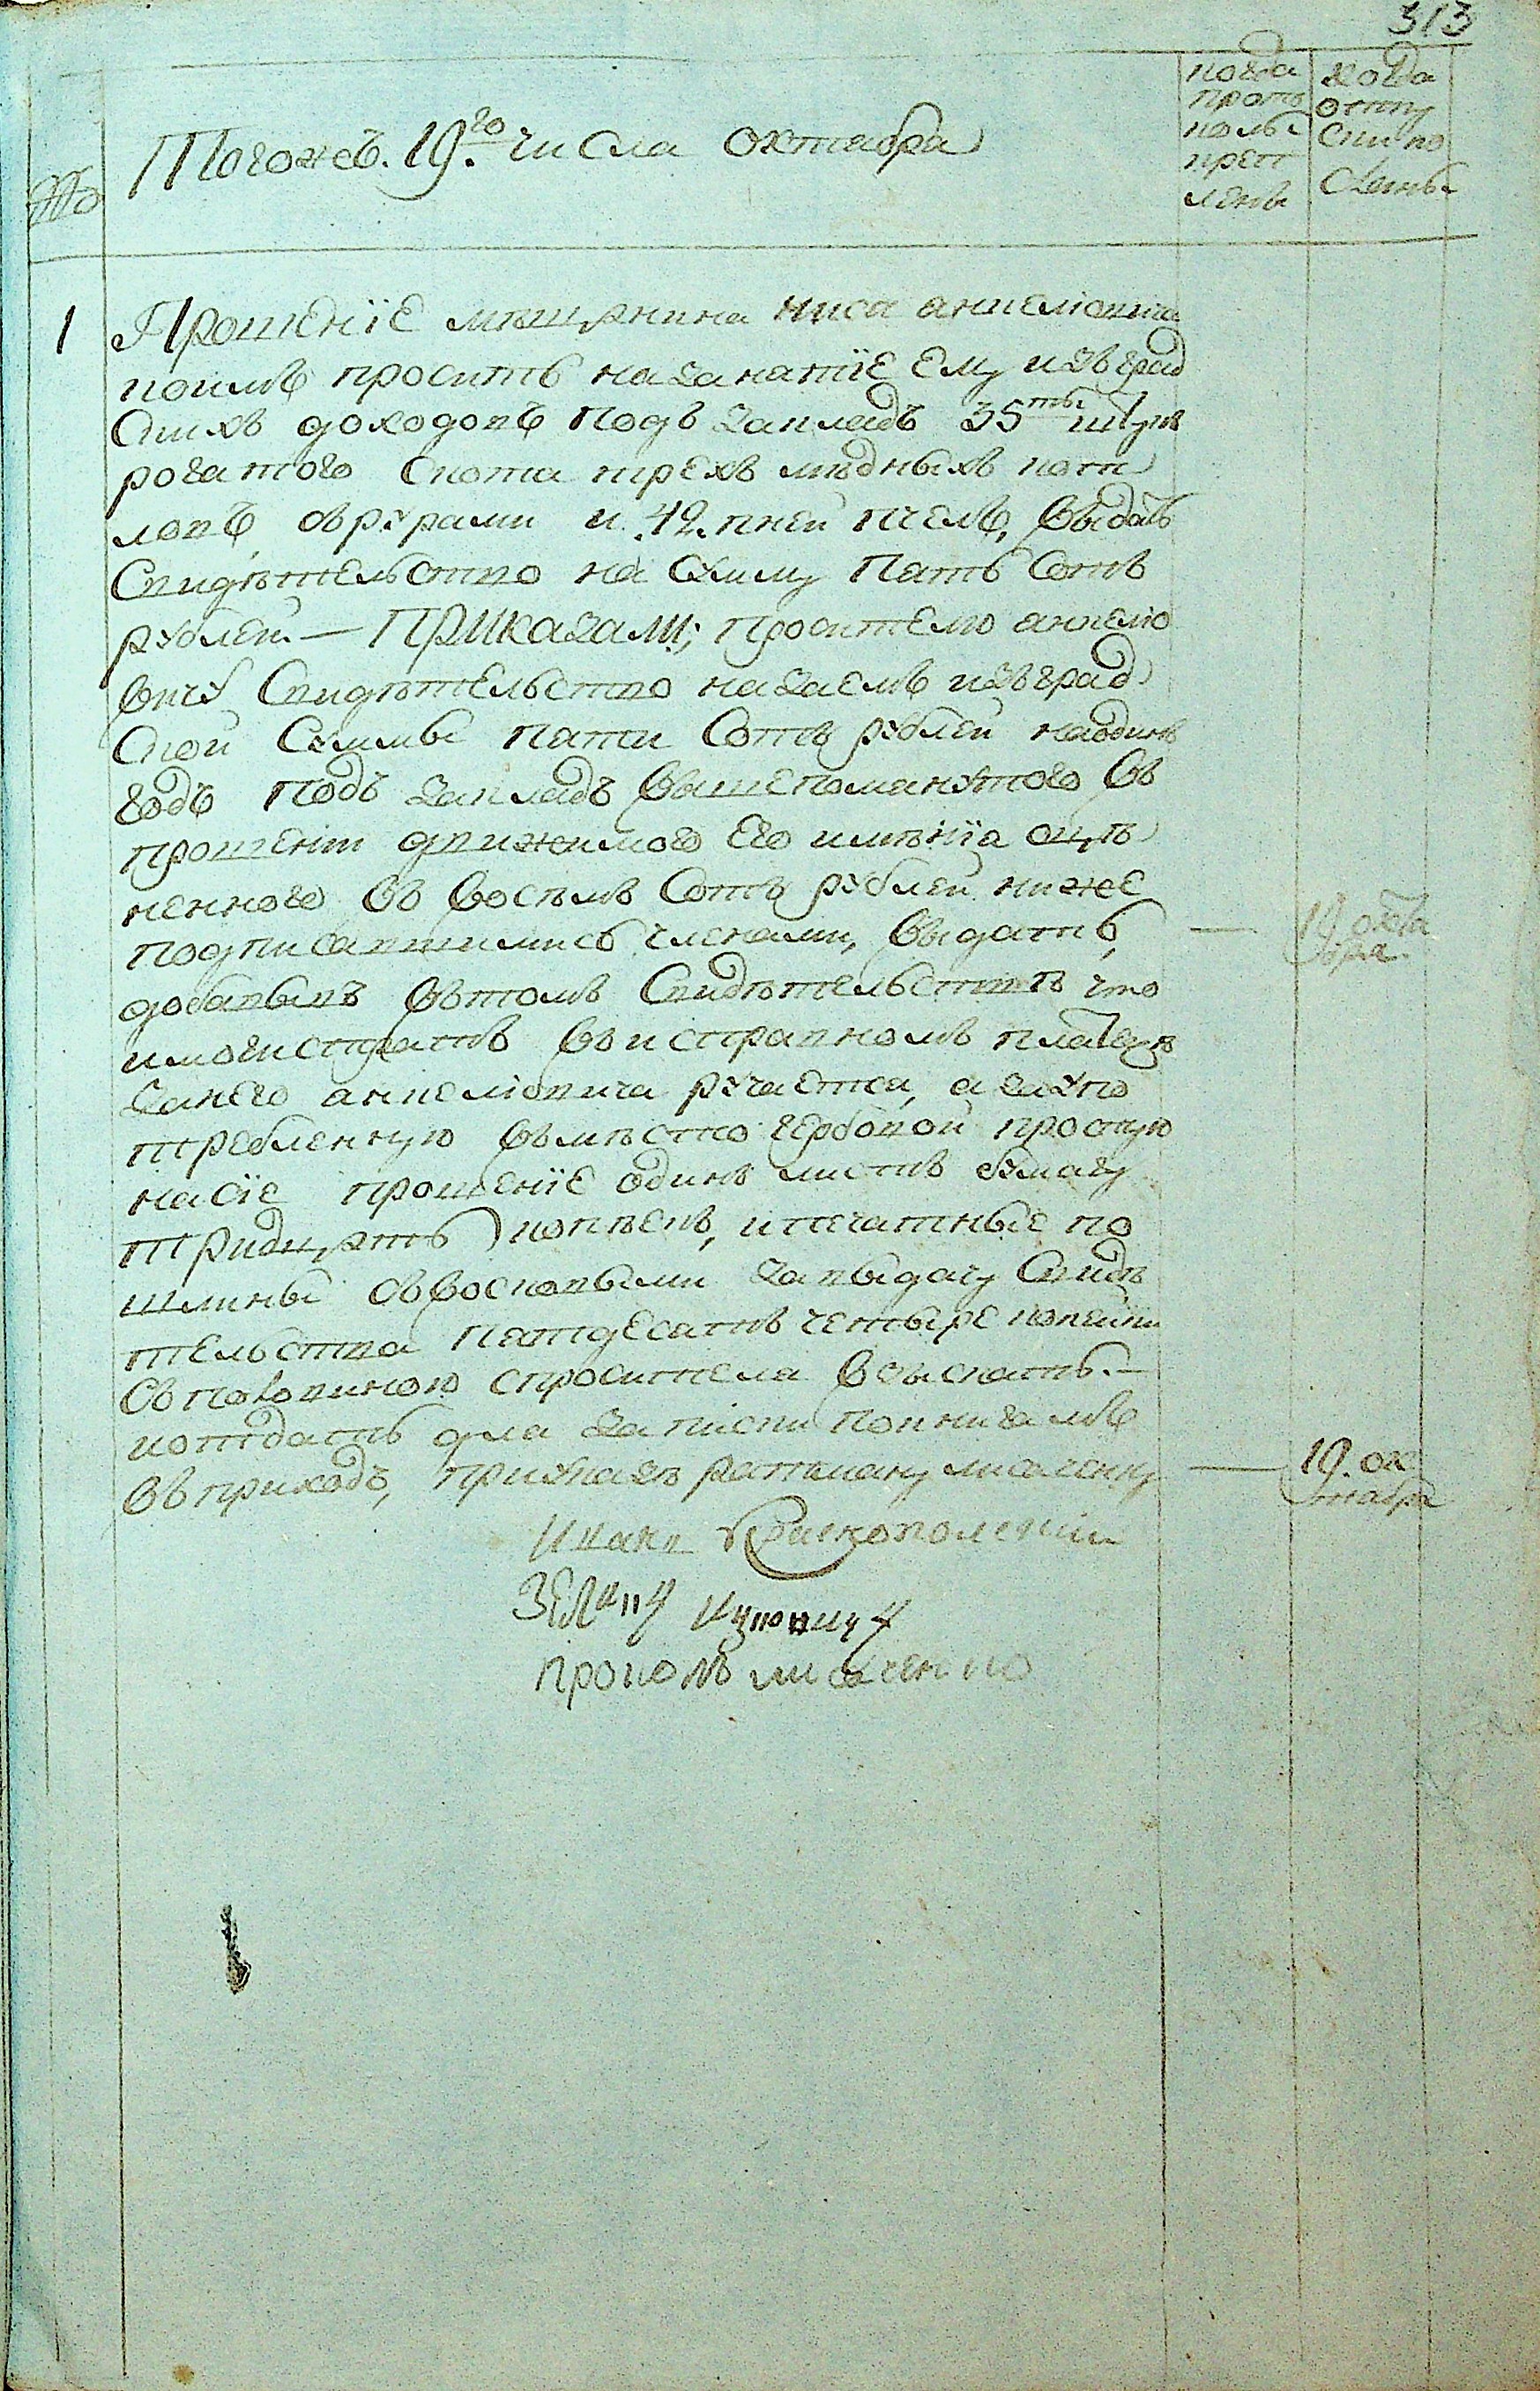 313
№
Тогожъ. 19.го числа октабра
когда
прото
колы
креп
лены
когда
отпу
ски по
сланы
1
Прошенїе мѣщанина Киса анкеловича
коимъ проситъ на занятїе ему изъ град
скихъ доходовъ подъ закладъ 35ти штукъ
рогатого скота трехъ мѣдныхъ кот
ловъ, съ рурами и .42. пней пчелъ, выдать
Свидѣтельство на сумму пять сотъ
рублей. — Приказали; просителю анкело
вичу Свидѣтельство на заемъ изъ град
ской суммы пяти сотъ рублей на одинъ
годъ подъ закладъ вышепомянутого въ
прошенїи движимого его имѣнїя оцѣ
ненного въ восемъ сотъ рублей ниже
подписавшимись членами, выдать,
добавывъ въ томъ Свидѣтельствѣ что
и магистратъ въ исправномъ платежѣ
за него анкеловича ручается, а за упо
требленную вмѣсто гербовой простую
на сїе прошенїе одинъ листъ бумагу
тридцять копѣекъ, и печатные по
шлины съ восковыми за выдачу Свидѣ
тельства пятдесятъ четыре копейки
съ половиною с просителя взыскать. —
и отдать для записки по книгамъ
въ приходъ, приказавъ ратману лисаченку
— 19 октя
бря.
— 19. ок
тября
Иванъ
прокопъ лисаченко